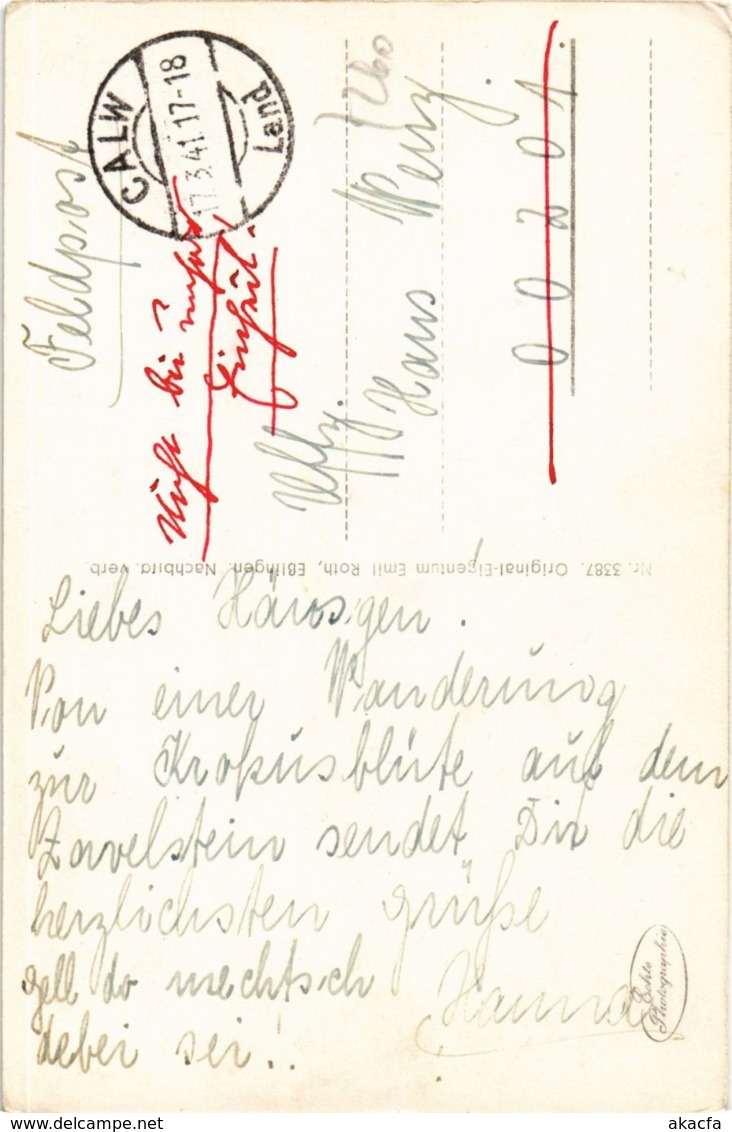 Feldpost
CALW
17.3.41.17-18
Land
Nicht bei unserer
Einheit.
Uffz.
Hans Wenz.
00201
Nr. 3387. Original-Eigentum Emil Roth, Eßlingen. Nachbildg. verb.
Liebes Häusgen!
Von einer Wanderung
zur Krokusblüte auf dem
Zavelstein sendet Dir die
herzlichsten grüße
gell do mechtsch
debei sei!!
Hanna
Echte
Photographie
www.akpool.co.uk
akacfa